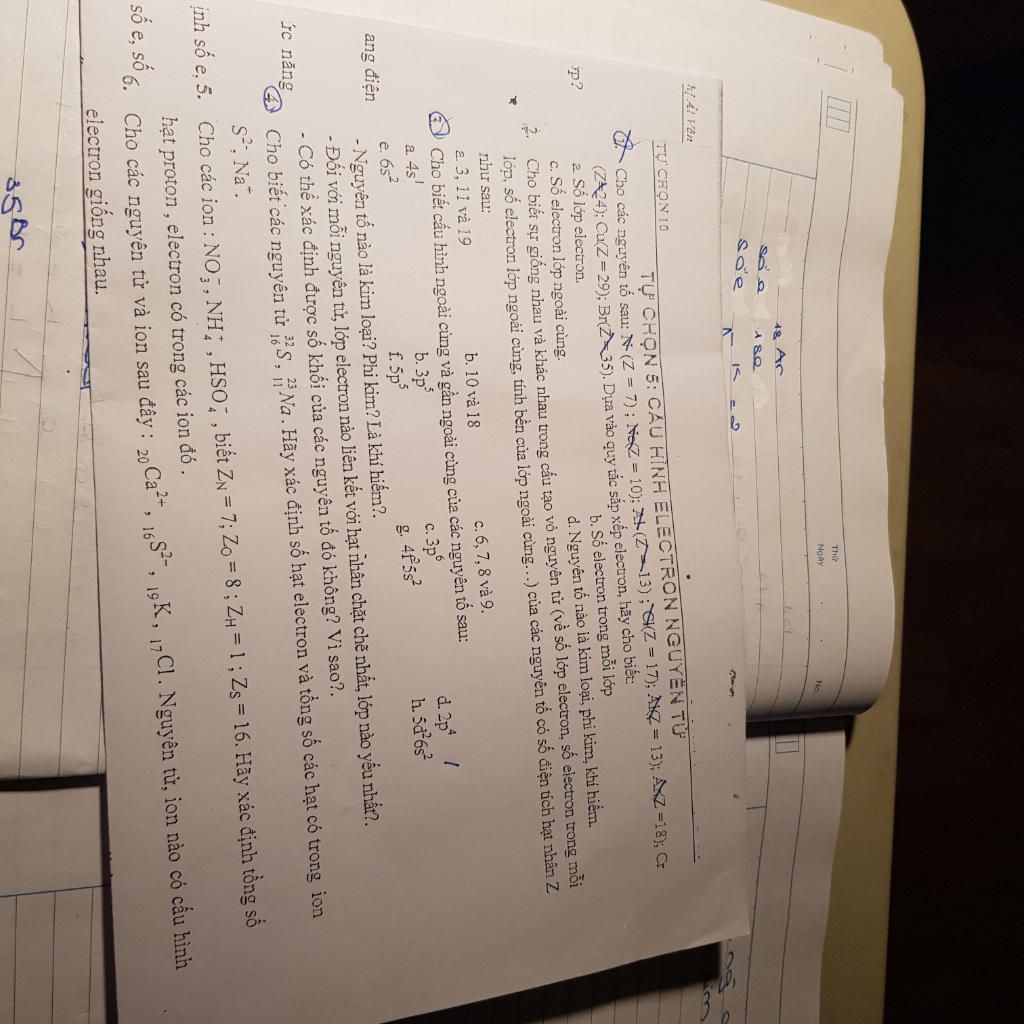 Thứ
Ngày
No.
18 Ar
số e 18e
số e
TỰ CHỌN 10
TỰ CHỌN 5: CẤU HÌNH ELECTRON NGUYÊN TỬ
1. Cho các nguyên tố sau: N (Z = 7) ; Ne(Z = 10); Al (Z = 13) ; Cl(Z = 17); Al(Z = 13); Ar(Z =18); Cr
(Z=24); Cu(Z = 29); Br(Z=35). Dựa vào quy tắc sắp xếp electron, hãy cho biết:
a. Số lớp electron. b. Số electron trong mỗi lớp
c. Số electron lớp ngoài cùng. d. Nguyên tố nào là kim loại, phi kim, khí hiếm.
2. Cho biết sự giống nhau và khác nhau trong cấu tạo vỏ nguyên tử (về số lớp electron, số electron trong mỗi
lớp, số electron lớp ngoài cùng, tính bền của lớp ngoài cùng…) của các nguyên tố có số điện tích hạt nhân Z
như sau:
a. 3, 11 và 19 b. 10 và 18 c. 6, 7, 8 và 9.
3. Cho biết cấu hình ngoài cùng và gần ngoài cùng của các nguyên tố sau:
a. 4s¹ b. 3p⁵ c. 3p⁶ d. 2p⁴
e. 6s² f. 5p⁵ g. 4f²5s² h. 5d²6s²
- Nguyên tố nào là kim loại? Phi kim? Là khí hiếm?.
- Đối với mỗi nguyên tử, lớp electron nào liên kết với hạt nhân chặt chẽ nhất, lớp nào yếu nhất?.
- Có thể xác định được số khối của các nguyên tố đó không? Vì sao?.
4. Cho biết các nguyên tử ³²₁₆S , ²³₁₁Na . Hãy xác định số hạt electron và tổng số các hạt có trong ion
S²⁻, Na⁺.
5. Cho các ion : NO₃⁻, NH₄⁺ , HSO₄⁻ , biết Z_N = 7; Z_O = 8 ; Z_H = 1 ; Z_S = 16. Hãy xác định tổng số
hạt proton , electron có trong các ion đó .
6. Cho các nguyên tử và ion sau đây : ₂₀Ca²⁺ , ₁₆S²⁻ , ₁₉K , ₁₇Cl . Nguyên tử, ion nào có cấu hình
electron giống nhau.
ớp?
ang điện
ức năng
ịnh số e,
số e, số
35Br